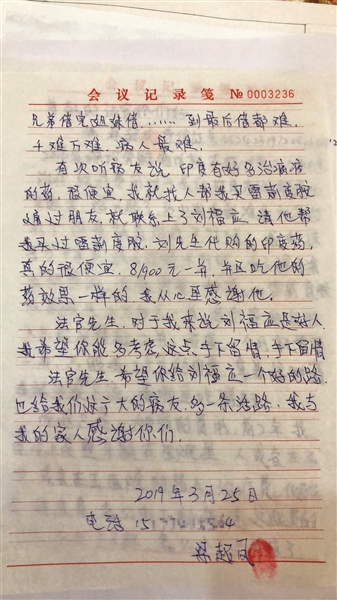 会议记录笺 №0003236
兄弟借完姐妹借……到最后借都难,
千难万难,病人最难.
有次听病友说,印度有好多治癌症
的药,很便宜.我就找人帮我买
通过朋友就联系上了刘福应.请他帮
我买过.刘先生代购的印度药,
真的很便宜.并且吃他的
药效果一样的.我从心里感谢他.
法官先生,对于我来说刘福应是好人.
我希望你能多考虑这点,手下留情,手下留情
法官先生希望你给刘福应一个好的路.
也给我们好广大的病友多一条活路.我与
我的家人感谢你们.
2019年3月25日
电话